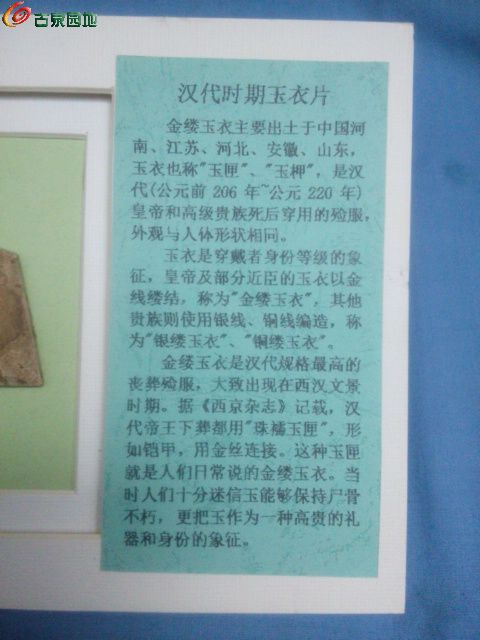 古泉园地
汉代时期玉衣片
金缕玉衣主要出土于中国河
南、江苏、河北、安徽、山东，
玉衣也称"玉匣"、"玉柙"，是汉
代(公元前 206 年~公元 220 年)
皇帝和高级贵族死后穿用的殓服，
外观与人体形状相同。
玉衣是穿戴者身份等级的象
征，皇帝及部分近臣的玉衣以金
线缕结，称为"金缕玉衣"，其他
贵族则使用银线、铜线编造，称
为"银缕玉衣"、"铜缕玉衣"。
金缕玉衣是汉代规格最高的
丧葬殓服，大致出现在西汉文景
时期。据《西京杂志》记载，汉
代帝王下葬都用"珠襦玉匣"，形
如铠甲，用金丝连接。这种玉匣
就是人们日常说的金缕玉衣。当
时人们十分迷信玉能够保持尸骨
不朽，更把玉作为一种高贵的礼
器和身份的象征。